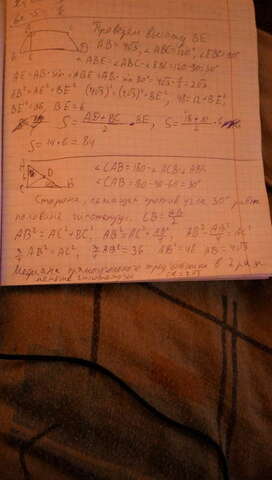 Проведем высоту BE
AB=4√3, ∠ABC=120°, ∠EBC=90°
∠ABE=∠ABC-∠EBC=120-90=30°
AE=AB·sin∠ABE=AB·sin 30°=4√3·½=2√3
AB²=AE²+BE² (4√3)²=(2√3)²+BE², 48=12+BE²
BE²=36, BE=6
S=AD+BC/2·BE, S=18+10/2·6
S=14·6=84
∠CAB=180-∠ACB-∠ABC
∠CAB=180-90-60=30°
Сторона, лежащая против угла 30° равна
половине гипотенузы. CB=AB/2
AB²=AC²+BC², AB²=AC²+AB²/4, AB²-AB²/4=AC²
¾AB²=AC², ¾AB²=36 AB²=48 AB=4√3
Медиана прямоугольного треугольника в 2 раза
меньше гипотенузы CD=2√3